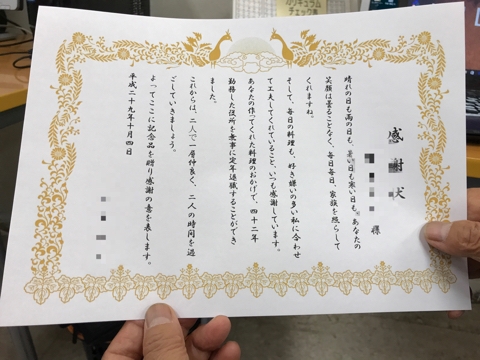 感謝状
様
晴れの日も雨の日も、暑い日も寒い日も、あなたの
笑顔は曇ることなく、毎日毎日、家族を照らして
くれますね。
そして、毎日の料理も、好き嫌いの多い私に合わせ
て工夫してくれていること、いつも感謝しています。
あなたの作ってくれた料理のおかげで、四十二年
勤務した役所を無事に定年退職することができ
ました。
これからは、二人で一層仲良く、二人の時間を過
ごしていきましょう。
よってここに記念品を贈り感謝の意を表します。
平成二十九年十月四日
カリキュラム
チェック